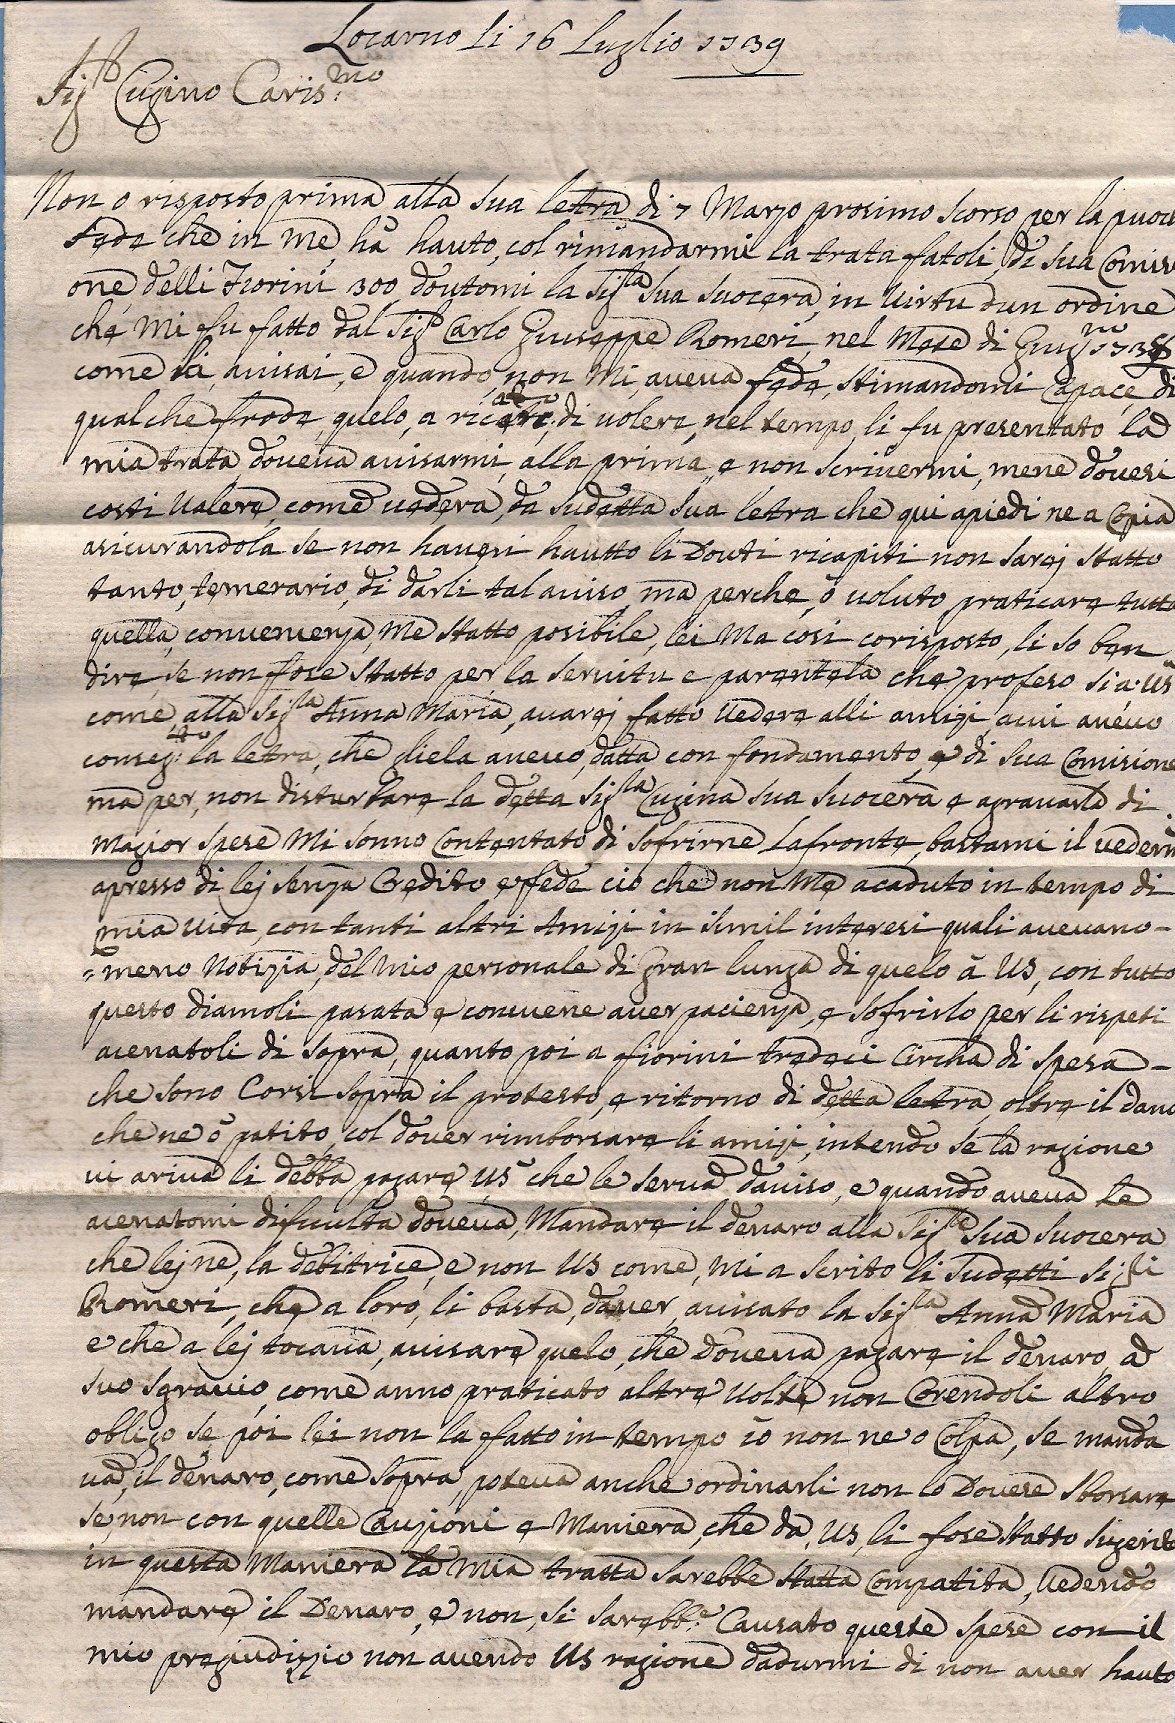 Locarno li 16 Luglio 1739
Sig.r Cugino Caris.mo
Non o risposto prima alla sua letra di 7 Marzo prosimo scorso per la puoca
fede che in me, hà hauto, col rimandarmi la trata fatoli, di sua Comisi
one delli Fiorini 300 doutomi la Sig.ra sua suocera, in uirtu d'un ordine
che mi fu fatto dal Sig.r Carlo Giuseppe Romeri, nel Mese di Giug.no
come li auisai, e quando, non mi, aueua fede, stimandomi Capace, di
qualche frode, quelo, a di uolere, nel tempo, li fu presentato la
mia trata doueua auisarmi, alla prima, e non scriuermi, mene douesi
costi Ualere, come uedera, da sudetta sua letra che qui apiedi ne a Copia
asicurandola se non haueri hautto li Douti ricapiti non sarej statto
tanto, temerario, di darli tal auiso ma perche, ò uoluto praticare tutta
quella, conuenienza, Me statto posibile, lei Ma cosi corisposto, li so ben
dire, se non fose statto per la seruitu e parentela che profeso si a US
come alla Sig.ra Anna Maria, auarej fatto Uedere alli amizi, a cui aueuo
conseg.to la letra, che gliela aueuo, datta con fondamento, e di sua Comisione
ma per, non disturbare la detta Sig.ra Cugina sua suocera e agrauarla di
magior spese Mi sonno Contentato di sofrirne Lafronto, bastami il uedermi
apresso di lej senza Credito e fede cio che non Me acaduto in tempo di
mia uita, con tanti altri Amizi in simil interesi quali aueuano-
=meno Notizia, del mio personale di gran lunga di quelo à US, con tutto
questo diamoli pasata e conuiene auer pacienza, e sofrirlo per li rispeti
acenatoli di sopra, quanto poi a fiorini tredeci Circha di spesa-
che sono Corsi sopra il protesto, e ritorno di detta letra, oltre il dano
che ne ò patito, col douer rimborsare li amizi, intendo se la ragione
ui ariua li debba pagare, US che le serua dauiso, e quando aueua le
acenatomi dificulta doueua, Mandare il denaro alla Sig.ra Sua Suocera
che lej ne, la debitrice, e non US come, mi a scrito li Sudetti Sig.ri
Romeri, che a loro, li basta, dauer, auisato la Sig.ra Anna Maria
e che a lej tocaua, auisare quelo, che doueua pagare il denaro, ad
suo sgrauio, come anno praticato altre Uolte non Corendoli altro
obligo se poi lei non la fatto in tempo io non ne o Colpa, se manda
ua, il denaro, come sopra, poteua anche ordinarli non lo Douese sborsare
se, non con quelle Cauzioni e Maniera, che da, US, li fose statto sugerito
in questa Maniera la Mia tratta sarebbe statta Compatita, Uedendo
mandare il Denaro, e non, si sarebb.e Causato queste spese con il
mio pregiudizzio non auendo US ragione dadurmi di non auer hauto